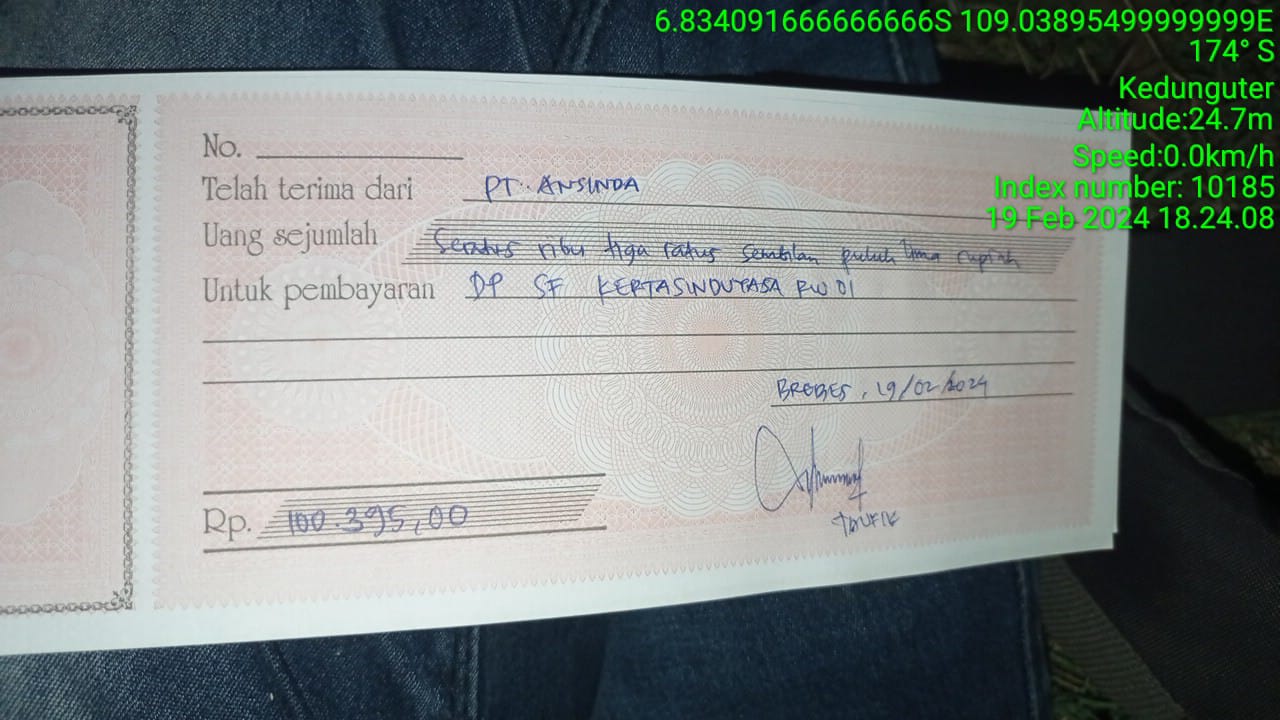 6.834091666666666S 109.03895499999999E
174° S
Kedunguter
Altitude:24.7m
Speed:0.0km/h
Index number: 10185
19 Feb 2024 18.24.08
No.
Telah terima dari PT. ANSINDA
Uang sejumlah Seratus ribu tiga ratus sembilan puluh lima rupiah
Untuk pembayaran DP SF KERTASINDUYASA RW 01
BREBES, 19/02/2024
Rp. 100.395,00
TAUFIK